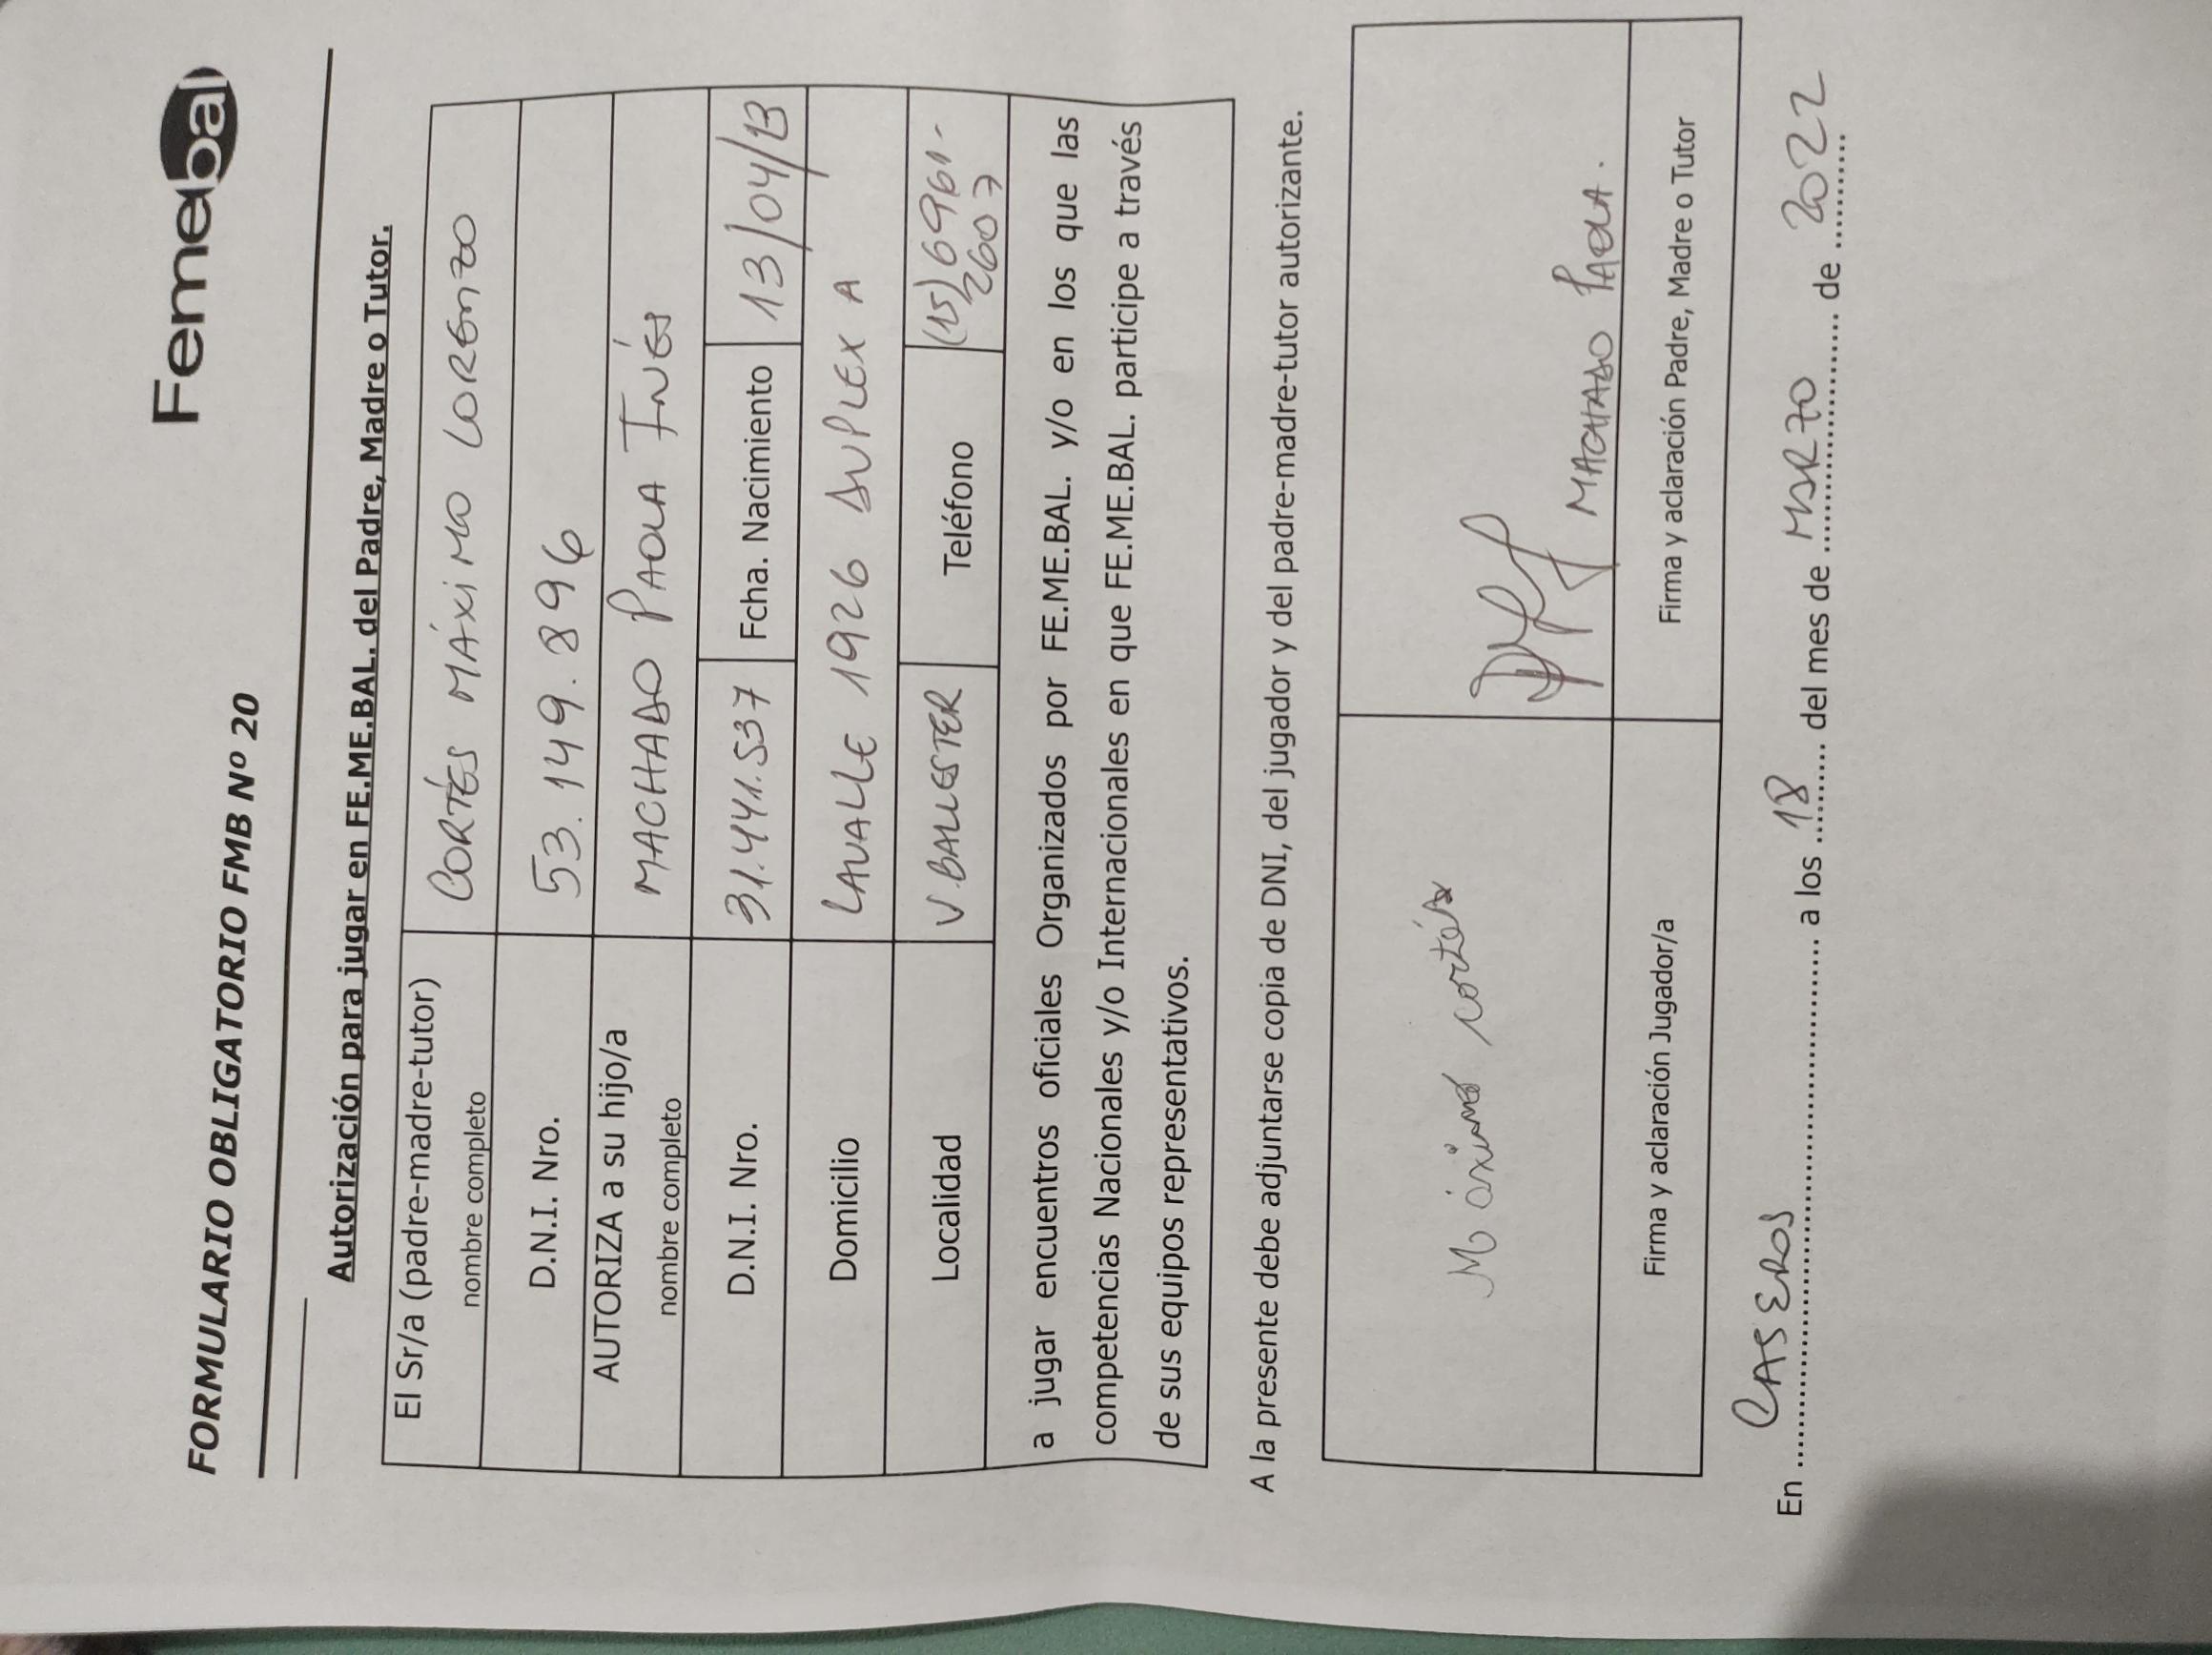 FORMULARIO OBLIGATORIO FMB Nº 20
Femebal
Autorización para jugar en FE.ME.BAL. del Padre, Madre o Tutor.
El Sr/a (padre-madre-tutor) CORTÉS MÁXIMO LORENZO
nombre completo
D.N.I. Nro. 53.149.896
AUTORIZA a su hijo/a MACHADO PAOLA INÉS
nombre completo
D.N.I. Nro. 31.441.537 Fcha. Nacimiento 13/04/13
Domicilio LAVALLE 1926 DUPLEX A
Localidad V. BALLESTER Teléfono (15) 6961-
2607
a jugar encuentros oficiales Organizados por FE.ME.BAL. y/o en los que las
competencias Nacionales y/o Internacionales en que FE.ME.BAL. participe a través
de sus equipos representativos.
A la presente debe adjuntarse copia de DNI, del jugador y del padre-madre-tutor autorizante.
Máximo cortés
MACHADO PAOLA.
Firma y aclaración Jugador/a Firma y aclaración Padre, Madre o Tutor
En CASEROS a los 18 del mes de MARZO de 2022